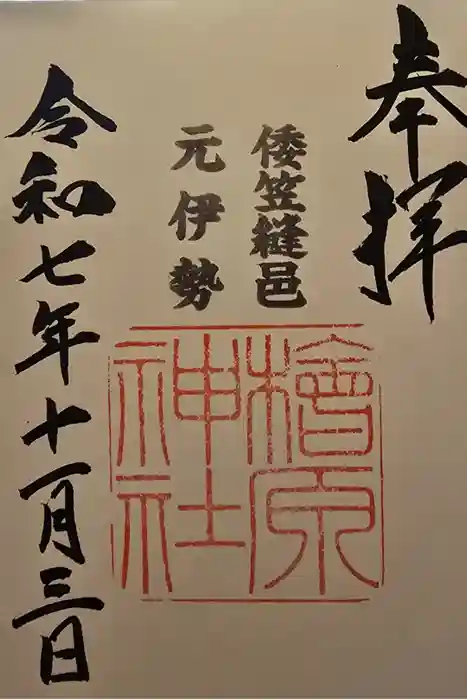 奉拝
倭笠縫邑
元伊勢
檜原
神社
令和七年十一月三日